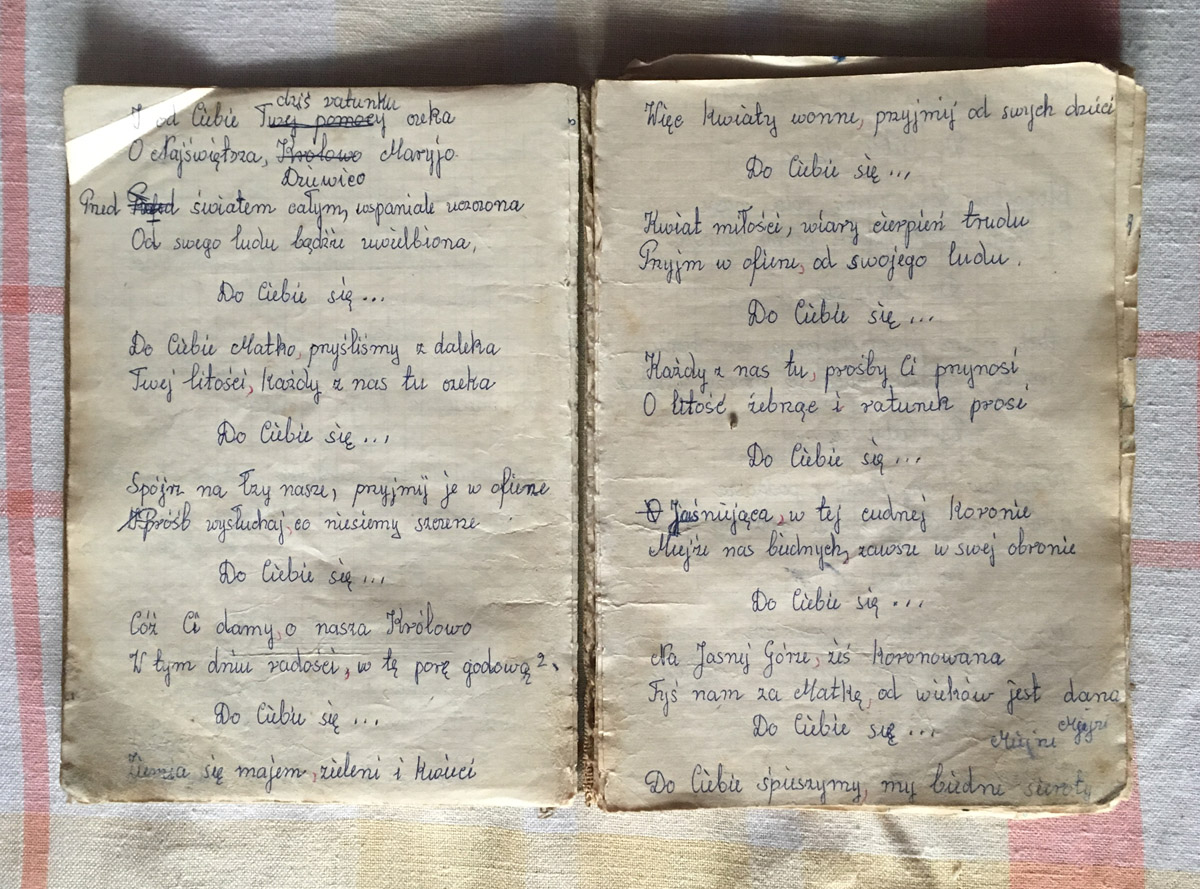 dziś ratunku
I od Ciebie Twej pomocy czeka
O Najświętsza, Królowo Maryjo
Dziewico
Przed Przed światem całym, wspaniale uczczona
Od swego ludu bądźże uwielbiona,
Do Ciebie się...
Do Ciebie Matko, przyśliśmy z daleka
Twej litości, każdy z nas tu czeka
Do Ciebie się...
Spójrz na łzy nasze, przyjmij je w ofierze
Próśb wysłuchaj, co niesiemy szczerze
Do Ciebie się...
Cóż Ci damy, o nasza Królowo
W tym dniu radości, w tę porę godową?
Do Ciebie się...
Ziemia się majem, zieleni i kwieci
Więc kwiaty wonne, przyjmij od swych dzieci
Do Ciebie się...
Kwiat miłości, wiary cierpień trudu
Przyjm w ofierze, od swojego ludu.
Do Ciebie się...
Każdy z nas tu, prośby Ci przynosi
O litość żebrząc i ratunek prosi
Do Ciebie się...
O Jaśniejąca, w tej cudnej koronie
Miejże nas biednych, zawsze w swej obronie
Do Ciebie się...
Na Jasnej Górze, żeś koronowana
Tyś nam za Matkę, od wieków jest dana
Do Ciebie się...
Do Ciebie śpieszymy, my biedne sieroty